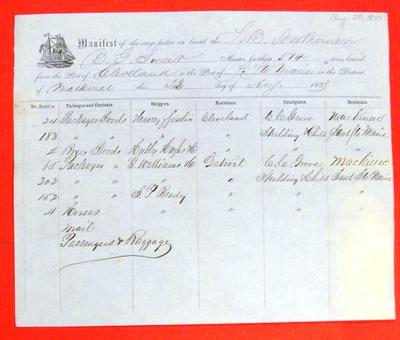 Aug. 22, 1855
Manifest of the cargo taken on board the S.B. Northerner
Master, burthen 514 tons, bound
from the Port of Cleveland to the Port of St. Marie in the District
of Mackinac this 22 day of Aug. 185
No. Entries. Packages and Contents. Shippers. Residence. Consignees. Residence.
24 Packages Goods Cleveland C.C. Grove Mackinac
183 " " " " Spalding & Childs Saut St Marie
4 Boxes Goods Hubby Hughes & Co " " "
65 Packages " G. Williams & Co Detroit C.C. Grove Mackinac
202 " " " " Spalding & Childs Saut St Marie
152 " " S.P. Brady " " "
4 Horses " " " "
Mail
Passengers & Baggage